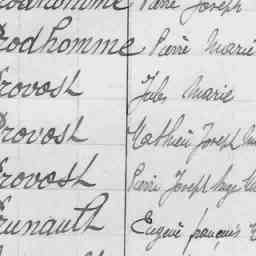 Pierre Joseph
rodhomme Pierre Marie
rovost Jules Marie
Provost Mathieu Joseph
rovost Pierre Joseph Ange
runault Eugène françois